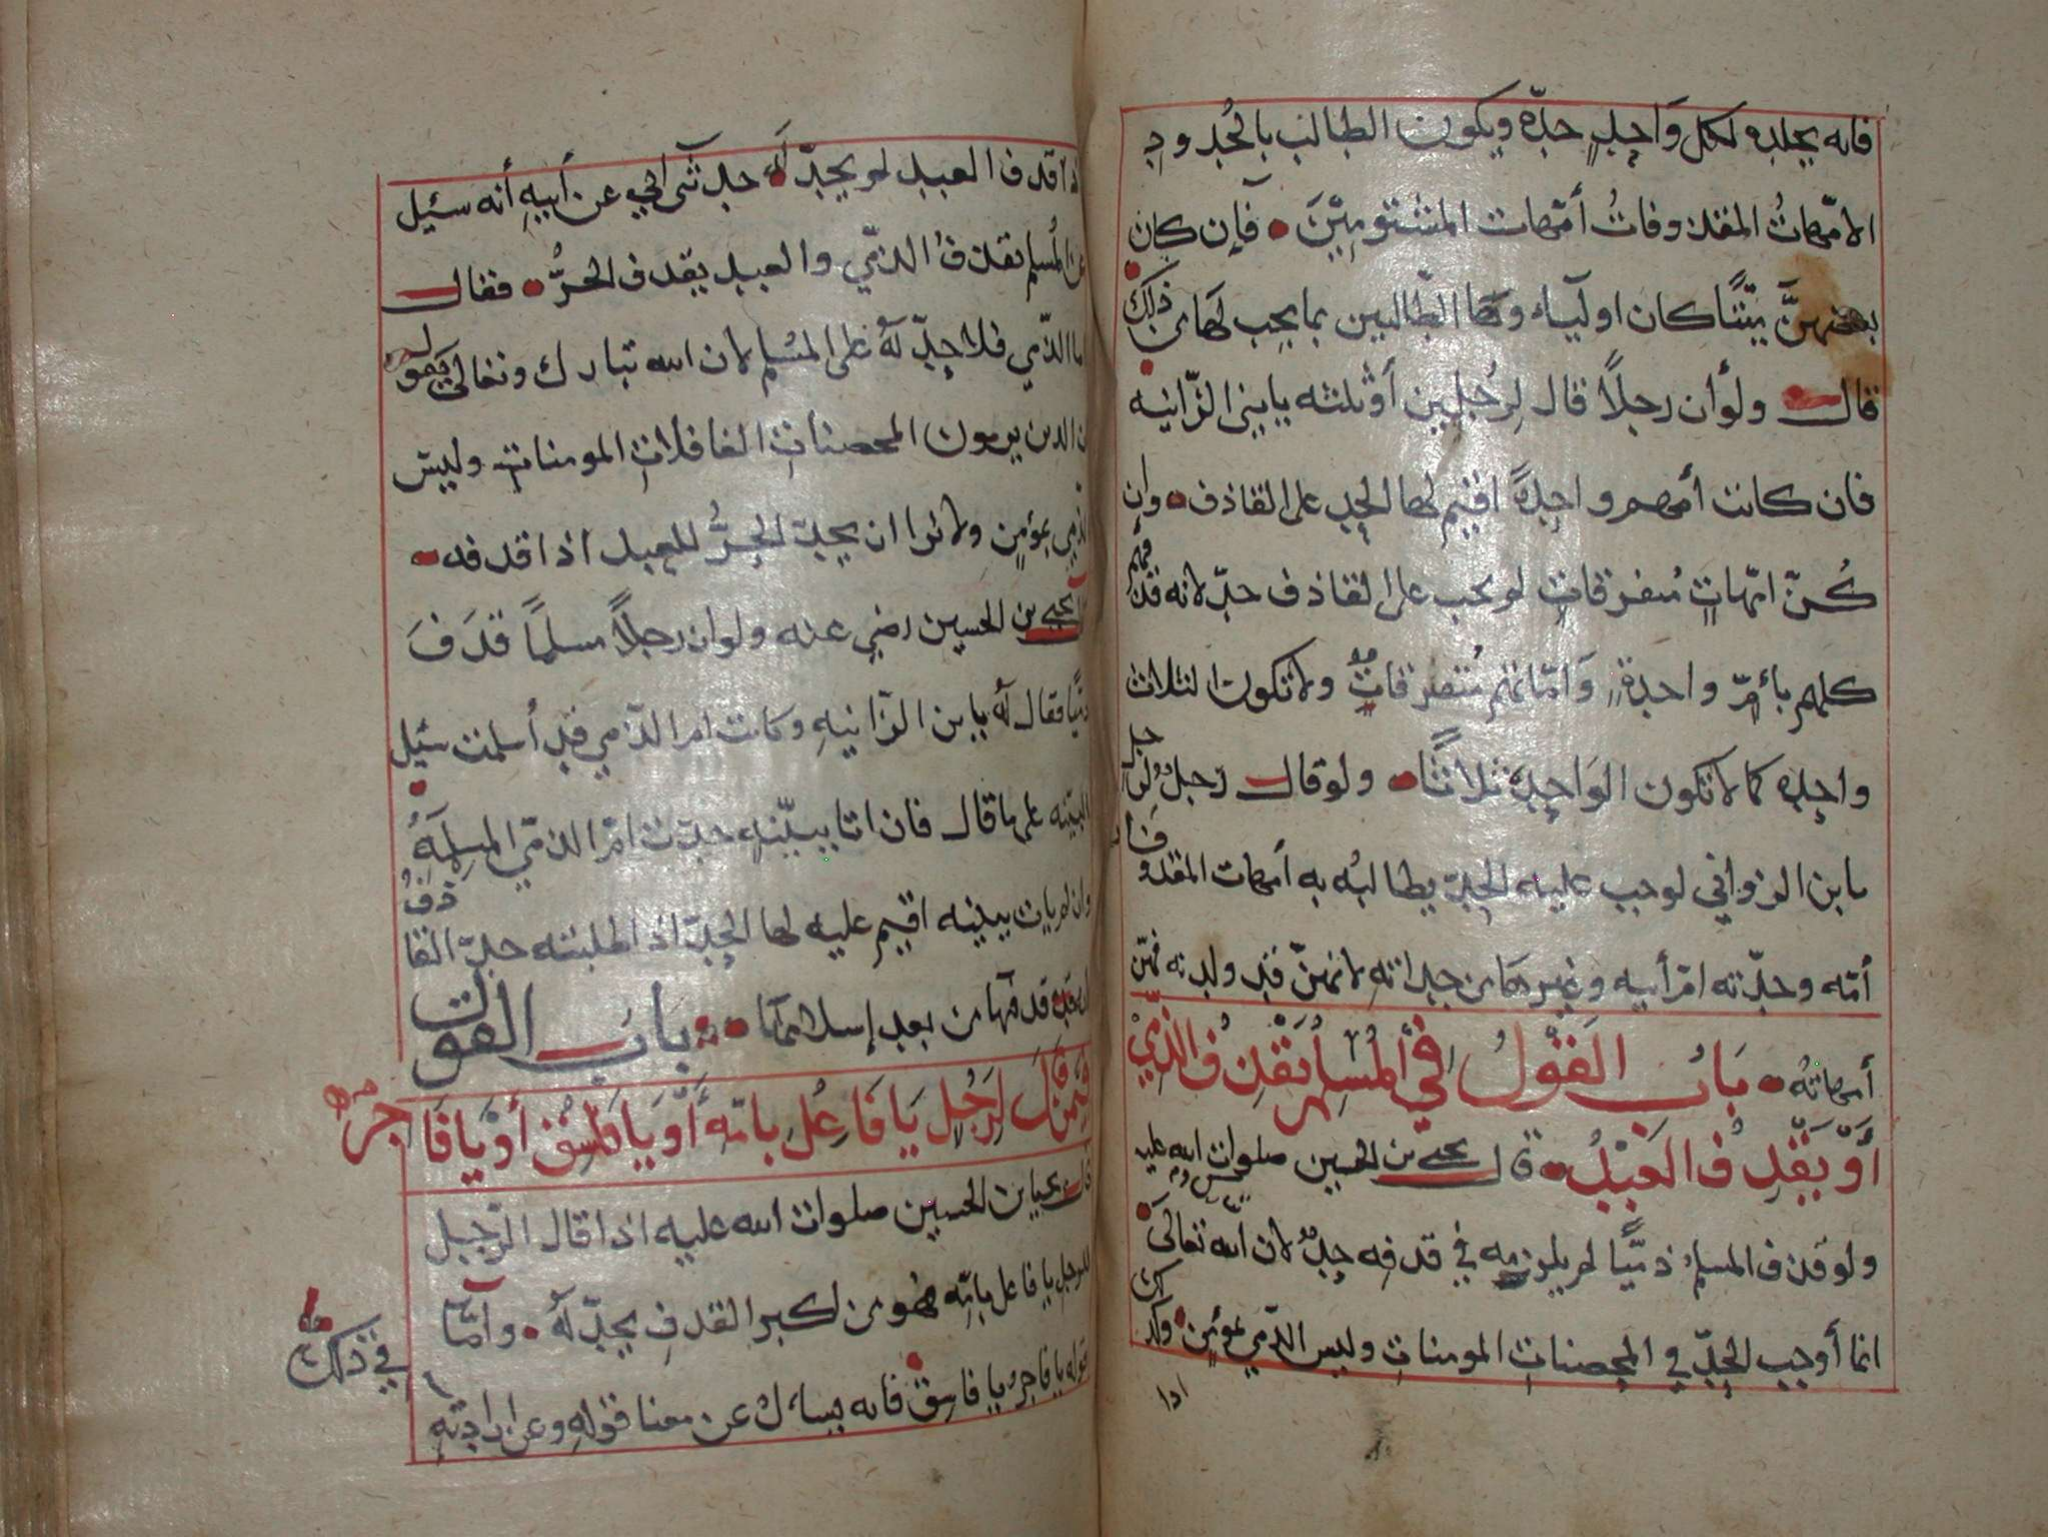 فانه يجلده لكل وَاحِدٍ حدّه ويكون الطالب بالحُدودِ
الامّهاتُ المقذوفاتُ أمّهات المشتومِيْنَ فإن كان
بعضهنَّ ميّتًا كان اوليآء وها الطّالبين بما يجب لها من ذلك
قال ولو أن رجلاً قال لِرَجُلين أو ثلثه يا بني الزّانيه
فان كانت أمهم واحِدةً اقيم لها الحد على القاذف وإن
كُنّ امّهاتٍ مُتفرّقاتٍ لم يجب على القاذف حدّ لانه قذفهم
كلهم بأمٍّ واحدةٍ وَامّهاتهم مُتفرّقاتٌ ولا تكون الثلاث
واحِده كما لا تكون الوَاحِدة ثلاثًا ولو قال رجلٌ لِرَجل
يا بن الزواني لوجب عليه الحدّ يطالبُه به أمهات المقذوف
أمّه وجدّته امّ أبيه وغيرها من جداته لانهنّ قد ولدنه فهنّ
أمهاتُه بَابُ القَوْلُ في المُسْلِم يَقْذِفُ الذِّمِّي
أَوْ يَقْذِفُ العَبْدُ قال يحيى بن الحسين صلوات الله عليه
ولو قذف المسلمُ ذمّيًا لم يلزمه في قذفه حدٌّ لان الله تعالى
انما أوجب الحدّ في المحصنات المومنات وليس الذّمي بمؤمِنٍ وكذلك
اذا
اذا قذف العبد لم يحدّ له حدثني ابي عن أبيه أنه سئيل
عن المُسلم يقذفُ الذمّي والعبد يقذف الحرُّ فقال
اما الذّمي فلا حدّ لهُ على المسْلم لان الله تبارك وتعالى يقول
ان الذين يرمون المحصناتِ الغافلاتِ المومنات وليس
الذمي بمؤمنٍ ولا نرا ان يحدّ الحرُّ للعبد اذا قذفه
قال يحيى بن الحسين رضي عنه ولو ان رجلاً مسلمًا قذفَ
ذمّيًا فقال لهُ يا بن الزّانيهِ وكانت امّ الذّمي قد أسلمت سئيل
البيّنه على ما قال فان اتا ببيّنهٍ حدّت امّ الذمّي المسلمةُ
وان لم يات ببينه اقيم عليه لها الحدّ اذا طلبته حدّ القاذفُ
لانه قد قذفها من بعد إسلامها بَابُ القول
فيمن قَالَ لِرَجُلٍ يَا فَاعِلُ بامّهِ أَوْ يَا فَاسِقُ أَوْ يَا فَاجر
قال يحيا بن الحسين صلوات الله عليه اذا قال الرّجل
للرجل يا فاعل بامّه فهو من اكبر القذفِ يحدّ لهُ وأمّا
قوله يا فاجرُ يا فاسِق فانه يسأل عن معنا قولِهِ وعن ارادتِهِ في ذلك